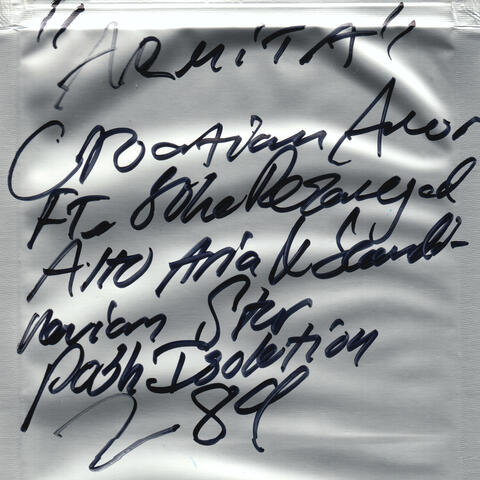 "ARMITA"
Croatian Amor
FT. Soho Rezanejad
Alto Aria & Scandi-
navian Star
Posh Isolation
289